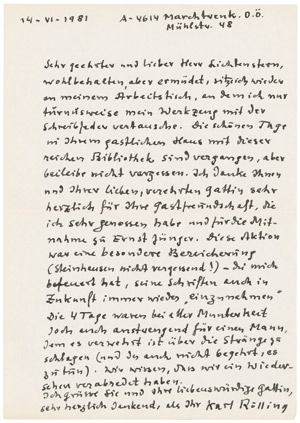 14-VI-1981 A-4614 Marchtrenk. O.Ö.
Mühlstr. 48
Sehr geehrter und lieber Herr Lichtenstern,
wohlbehalten aber ermüdet, sitz ich wieder
an meinem Arbeitstisch, an dem ich nur
turnusweise mein Werkzeug mit der
Schreibfeder vertausche. Die schönen Tage
in Ihrem gastlichen Haus mit dieser
reichen Bibliothek sind vergangen, aber
beileibe nicht vergessen. Ich danke Ihnen
und Ihrer lieben, verehrten Gattin sehr
herzlich für Ihre Gastfreundschaft, die
ich sehr genossen habe und für die Mit-
nahme zu Ernst Jünger. Diese Aktion
war eine besondere Bereicherung
(Steinhausen nicht vergessend!) - die mich
befeuert hat, seine Schriften auch in
Zukunft immer wieder "einzunehmen"
Die 4 Tage waren bei aller Munterkeit
doch auch anstrengend für einen Mann,
dem es verwehrt ist über die Stränge zu
schlagen (und der auch nicht begehrt, es
zu tun). Wir wissen, dass wir ein Wieder-
sehen verabredet haben.
Ich grüsse Sie und Ihre liebenswürdige Gattin,
sehr herzlich dankend, als Ihr Karl Rössing